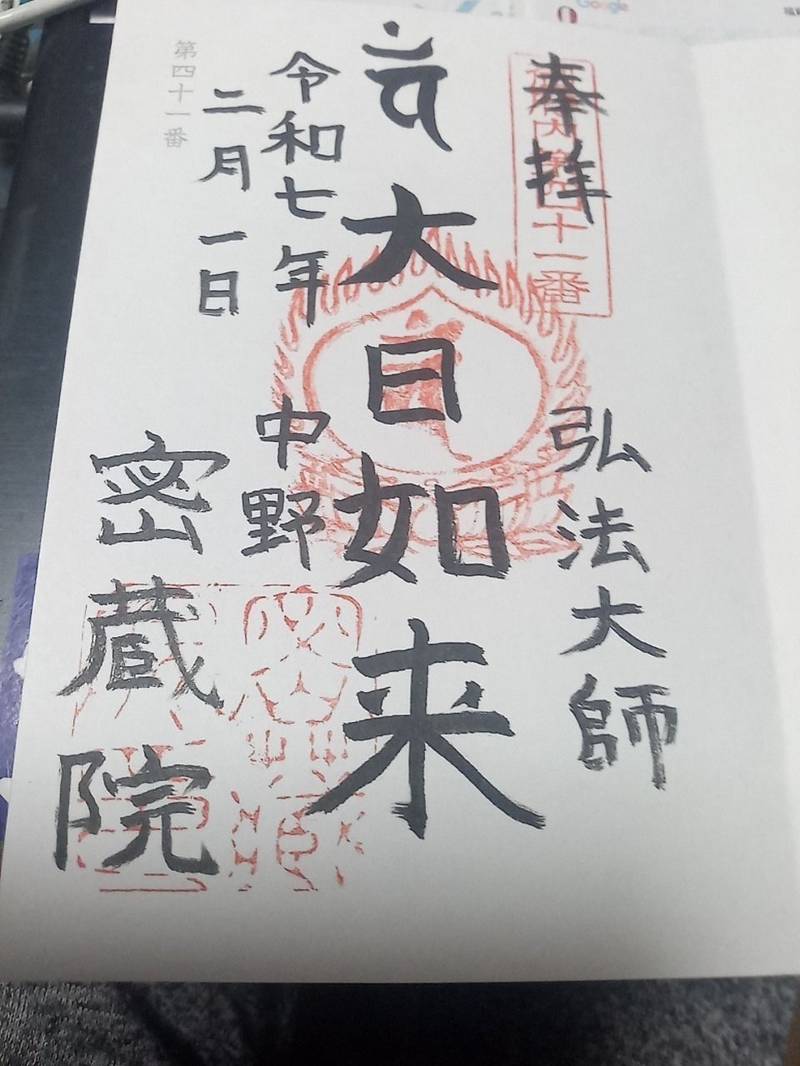 奉拝
第四十一番
弘法大師
大日如来
令和七年
二月一日
中野
密蔵院
第四十一番
Google